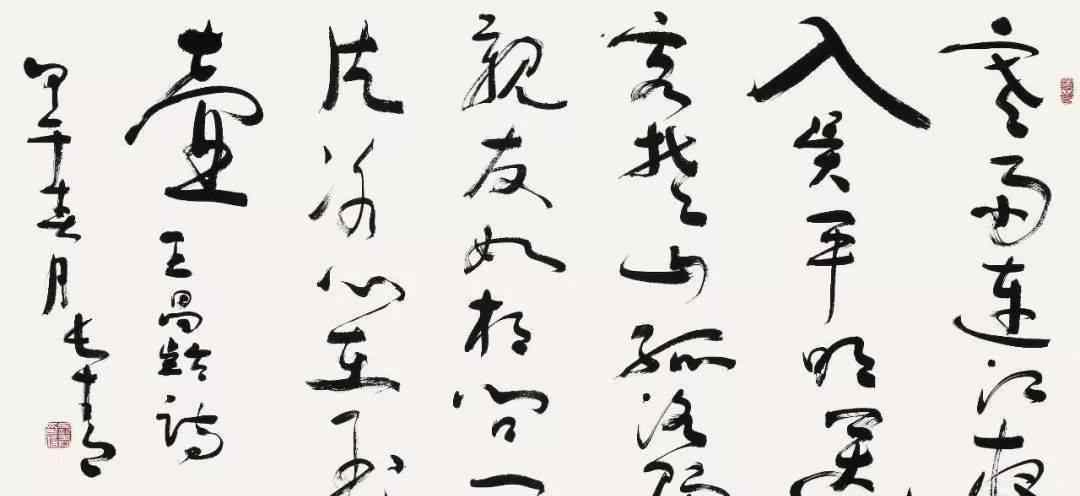 寒雨连江夜
入吴平明送
客楚山孤洛阳
亲友如相问一
片冰心在玉
壶
王昌龄诗
甲午春月